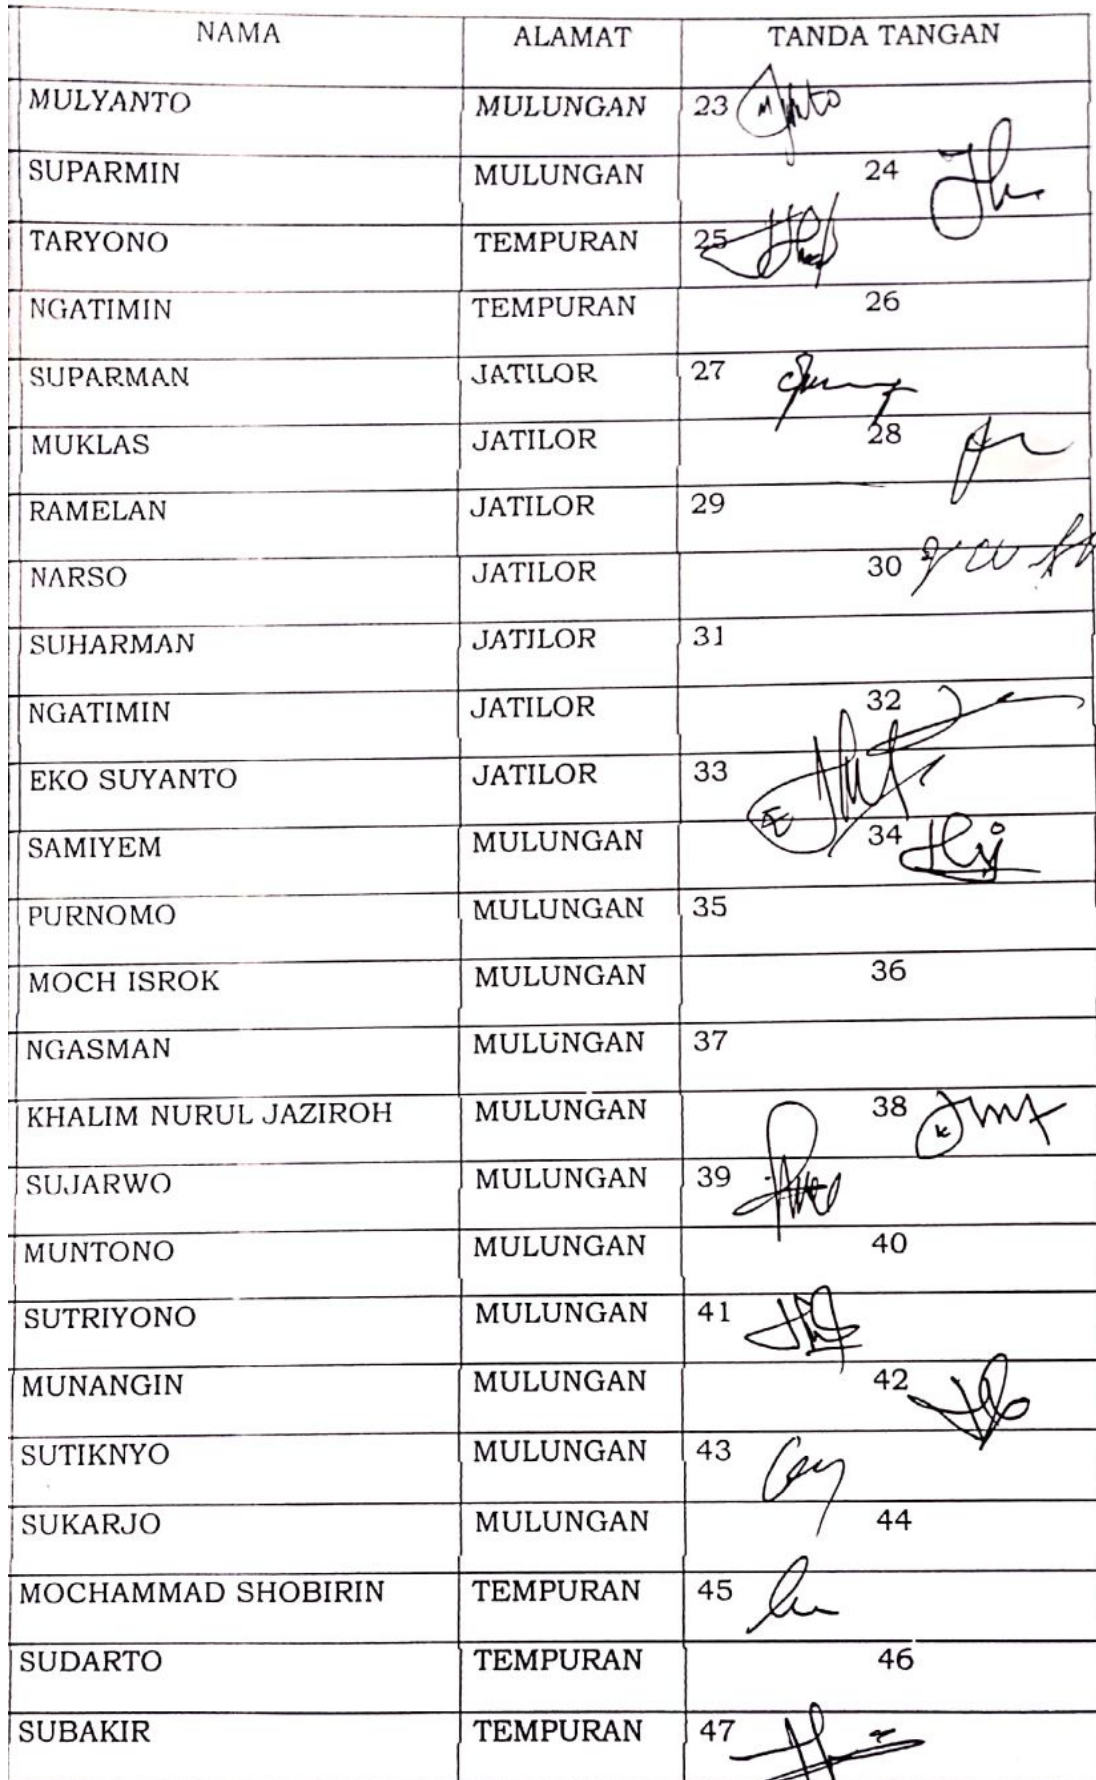 NAMA ALAMAT TANDA TANGAN
MULYANTO MULUNGAN 23
SUPARMIN MULUNGAN 24
TARYONO TEMPURAN 25
NGATIMIN TEMPURAN 26
SUPARMAN JATILOR 27
MUKLAS JATILOR 28
RAMELAN JATILOR 29
NARSO JATILOR 30
SUHARMAN JATILOR 31
NGATIMIN JATILOR 32
EKO SUYANTO JATILOR 33
SAMIYEM MULUNGAN 34
PURNOMO MULUNGAN 35
MOCH ISROK MULUNGAN 36
NGASMAN MULUNGAN 37
KHALIM NURUL JAZIROH MULUNGAN 38
SUJARWO MULUNGAN 39
MUNTONO MULUNGAN 40
SUTRIYONO MULUNGAN 41
MUNANGIN MULUNGAN 42
SUTIKNYO MULUNGAN 43
SUKARJO MULUNGAN 44
MOCHAMMAD SHOBIRIN TEMPURAN 45
SUDARTO TEMPURAN 46
SUBAKIR TEMPURAN 47